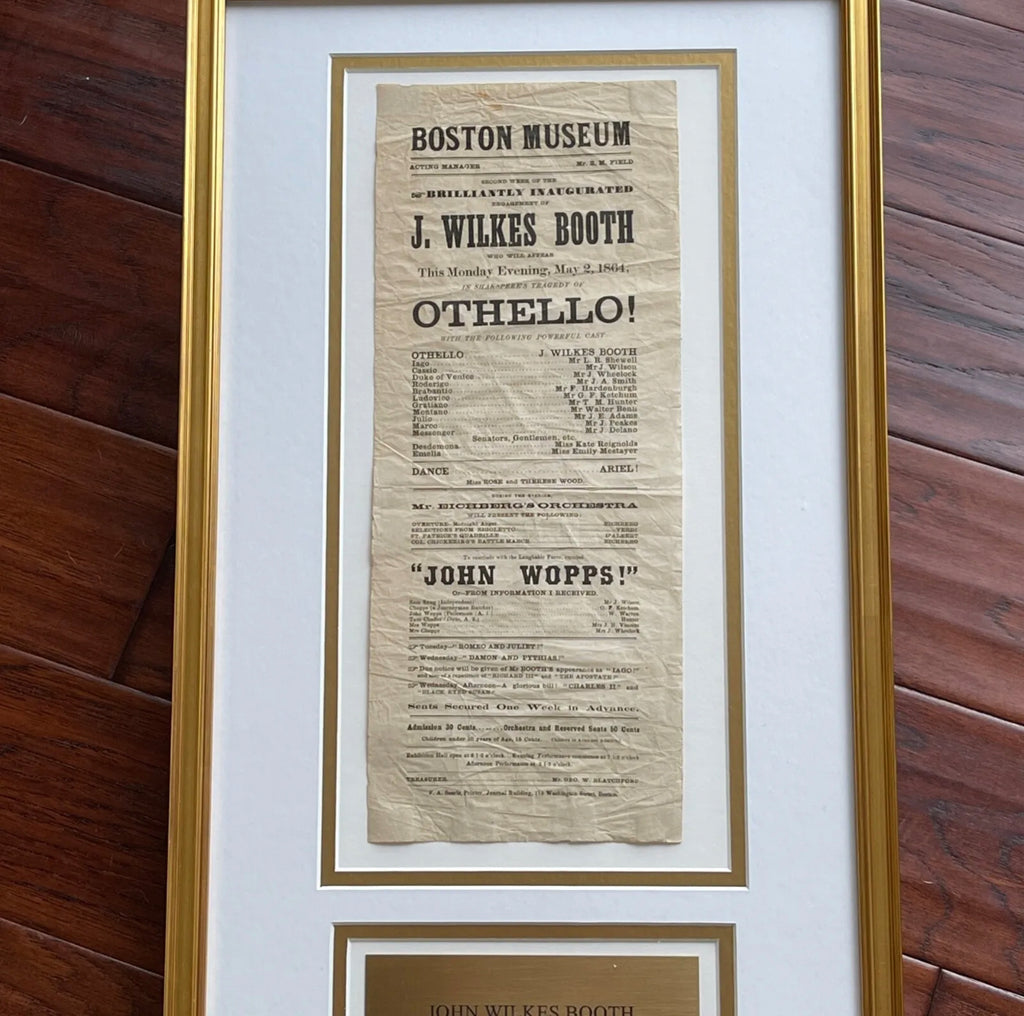 BOSTON MUSEUM
ACTING MANAGER Mr. E. M. FIELD
SECOND WEEK OF THE
BRILLIANTLY INAUGURATED
ENGAGEMENT OF
J. WILKES BOOTH
WHO WILL APPEAR
This Monday Evening, May 2, 1864,
IN SHAKSPERE'S TRAGEDY OF
OTHELLO!
WITH THE FOLLOWING POWERFUL CAST
OTHELLO J. WILKES BOOTH
Iago Mr L. R. Shewell
Cassio Mr J. Wilson
Duke of Venice Mr J. Wheelock
Roderigo Mr J. A. Smith
Brabantio Mr F. Hardenburgh
Ludovico Mr G. F. Ketchum
Gratiano Mr T. M. Hunter
Montano Mr Walter Benn
Julio Mr J. E. Adams
Marco Mr J. Peakes
Messenger Mr J. Delano
Senators, Gentlemen, etc.
Desdemona Miss Kate Reignolds
Emelia Miss Emily Mestayer
DANCE ARIEL!
Miss ROSE and THERESE WOOD.
DURING THE EVENING,
Mr. EICHBERG'S ORCHESTRA
WILL PRESENT THE FOLLOWING:
OVERTURE—Midnight EICHBERG
SELECTIONS FROM RIGOLETTO VERDI
ST. PATRICK'S QUADRILLE D'ALBERT
COL. CHICKERING'S BATTLE MARCH EICHBERG
To conclude with the Laughable Farce, entitled
"JOHN WOPPS!"
Or—FROM INFORMATION I RECEIVED.
(Independent) Mr J. Wilson
Chopps (a Journeyman Butcher) G. F. Ketchum
John Wopps (Policeman W. Warren
Tom Hunter
Mrs Wopps Mrs J. R. Vincent
Mrs Chopps Mrs J. Wheelock
Tuesday—"ROMEO AND JULIET!"
Wednesday—"DAMON AND PYTHIAS!"
Due notice will be given of Mr BOOTH'S appearance as "IAGO!"
and also of a repetition of "RICHARD III" and "THE APOSTATE!"
Wednesday Afternoon—A glorious bill! "CHARLES II" and
"BLACK EYED SUSAN."
Seats Secured One Week in Advance.
Admission 30 Cents......Orchestra and Reserved Seats 50 Cents
Children under 10 years of Age, 15 Cents.
Exhibition Hall open at o'clock. Evening Performance commences at o'clock
Afternoon Performance at o'clock.
TREASURER Mr. GEO. W. BLATCHFORD
F. A. Searle, Printer, Journal Building, 118 Washington Street, Boston.
JOHN WILKES BOOTH